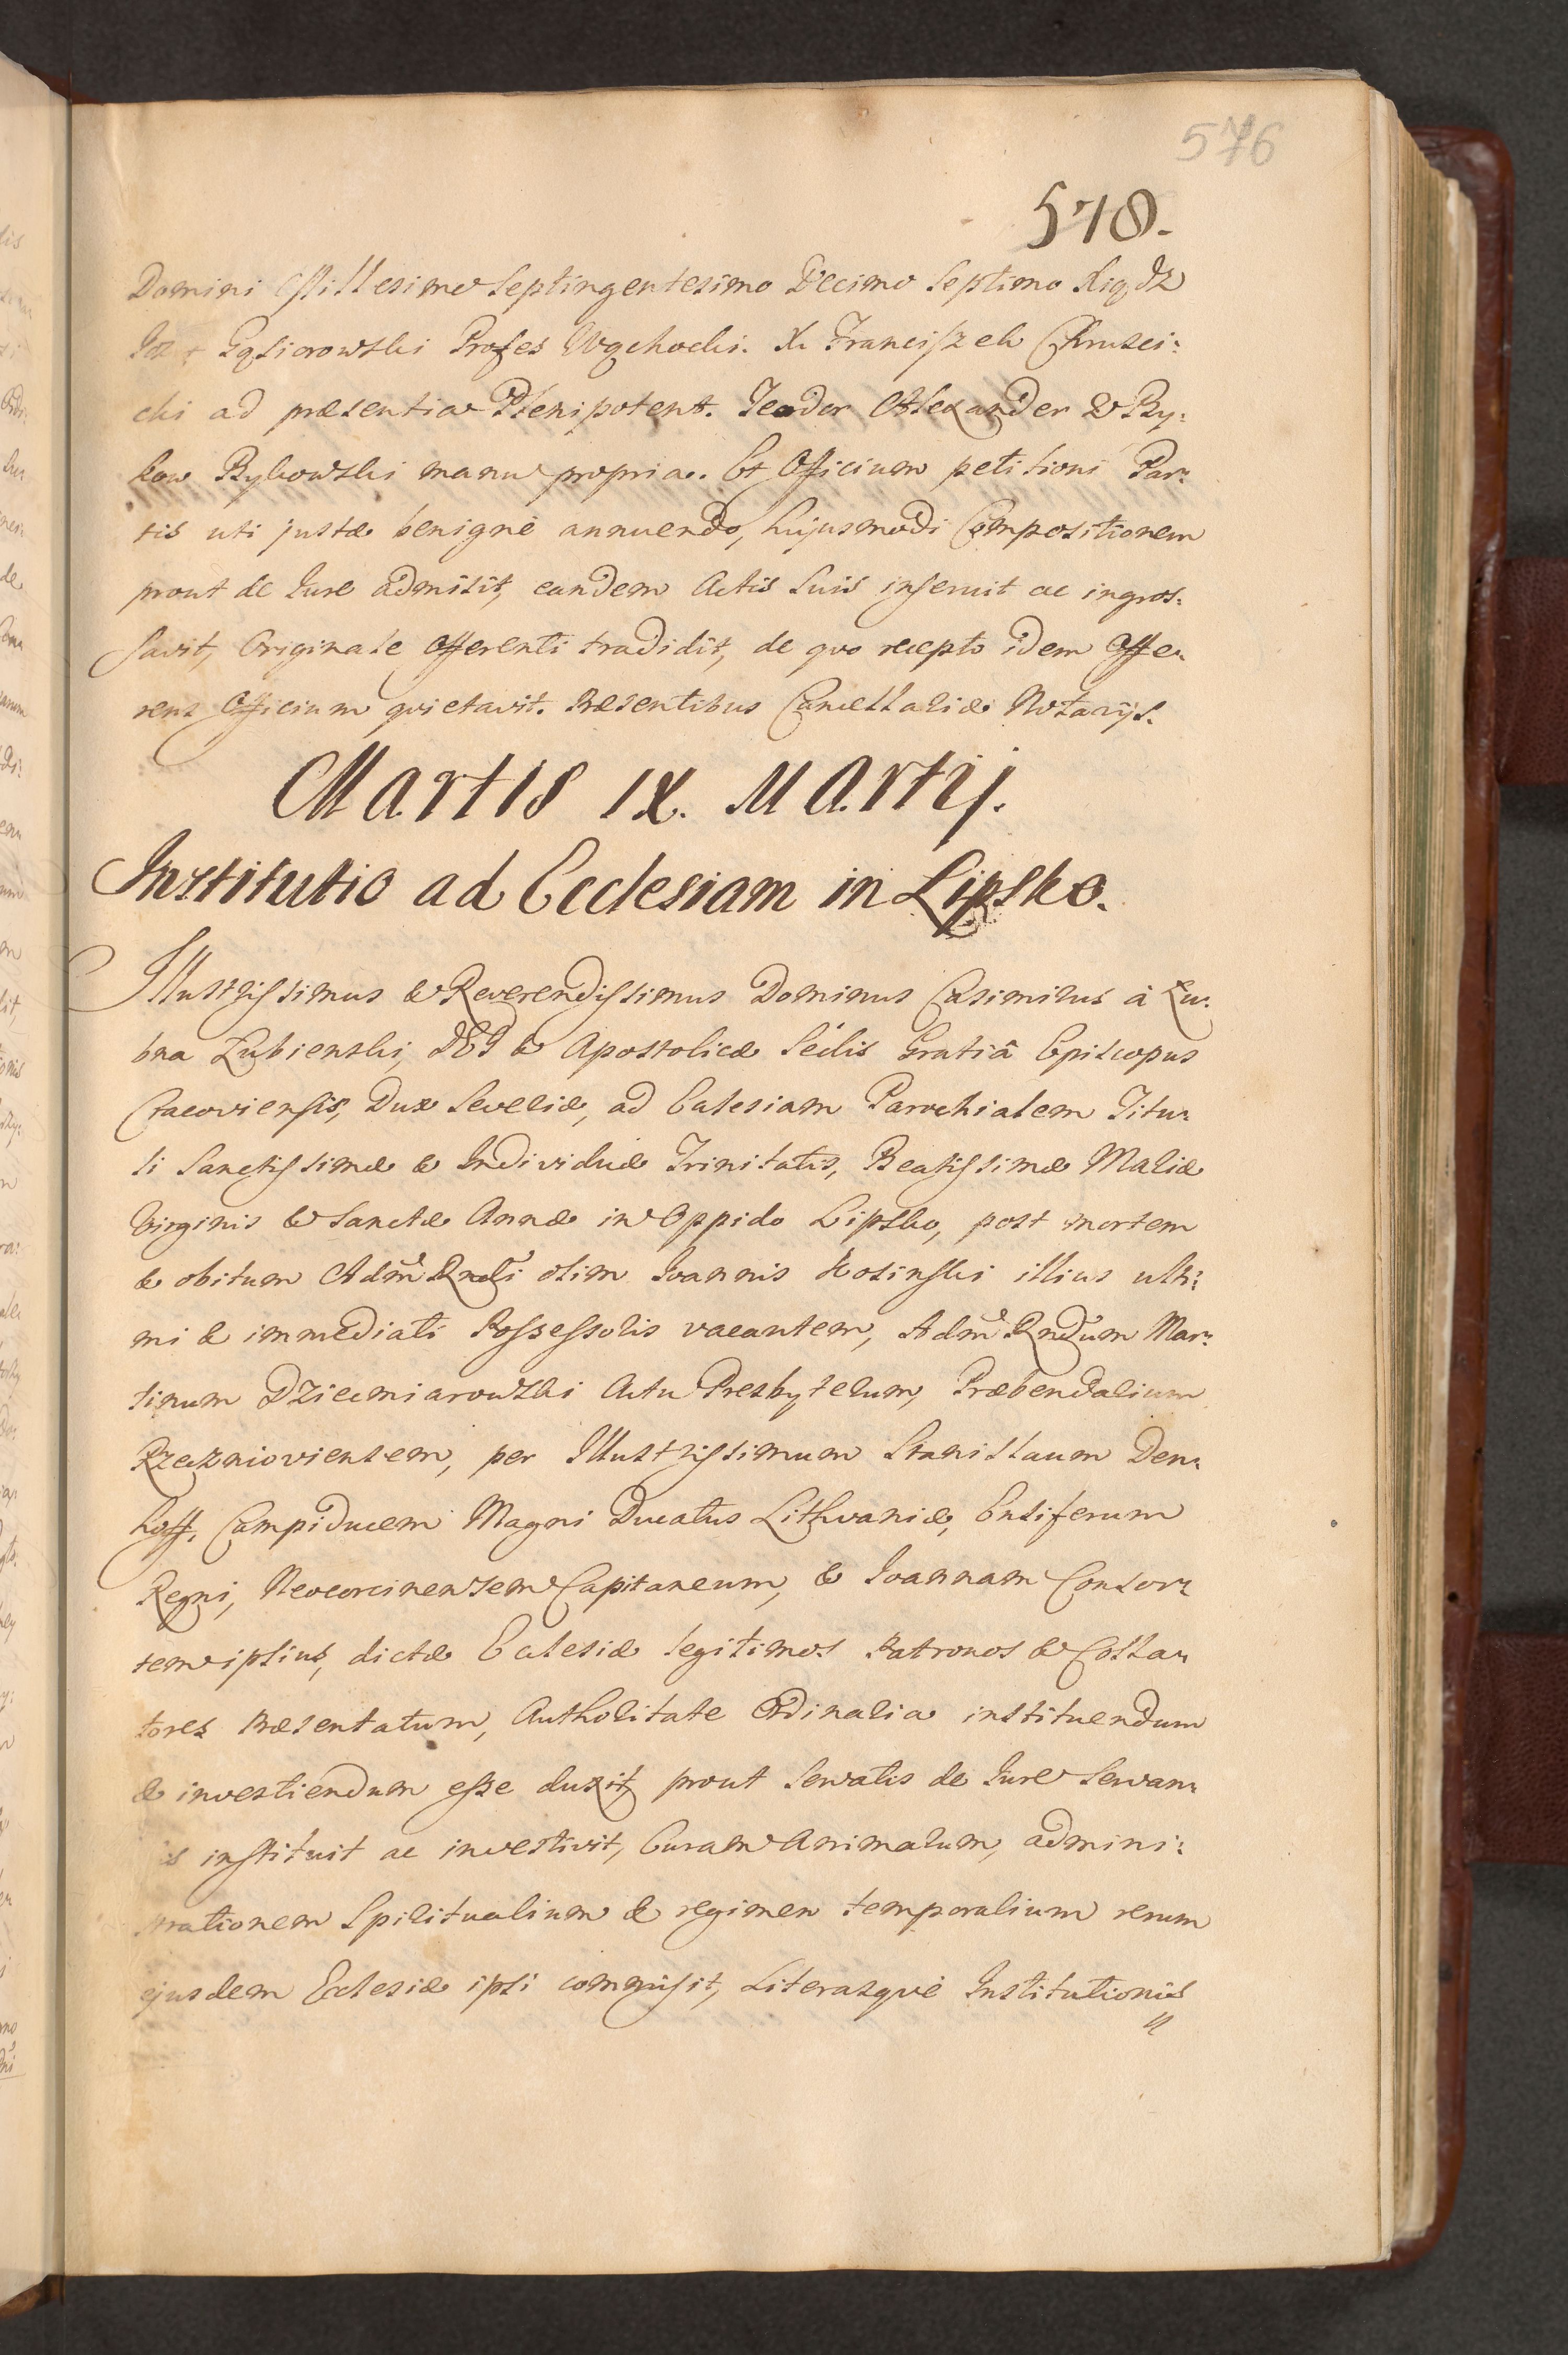 576
578.
Domini Millesimo Septingentesimo Decimo Septimo Xiądz
Gąsiorowski Profes Wąchocki. X. Franciszek Chrusci:
cki ad præsentia Plenipotent. Teodor Alexander z Ry:
kow Rykowski manu propria. Et Officium petitioni Par:
tis uti justæ benignè annuendo, hujusmodi Compositionem
prout de Jure admisit, eandem Actis suis inseruit ac ingros:
savit, Originale Offerenti tradidit, de quo recepto idem Offe:
rens Officium quietavit. Præsentibus Cancellariæ Notarijs.
Martis IX. Martij.
Institutio ad Ecclesiam in Lipsko.
Illustrissimus & Reverendissimus Dominus Casimirus à Łu:
bna Łubienski, DEI & Apostolicæ Sedis Gratiâ Episcopus
Cracoviensis, Dux Severiæ, ad Ecclesiam Parochialem Titu:
li Sanctissimæ & Individuæ Trinitatis, Beatissimæ Mariæ
Virginis & Sanctæ Annæ in Oppido Lipsko, post mortem
& obitum Adm Rndi olim Joannis Kosinski illius ulti:
mi & immediati Possessoris vacantem, Adm Rndum Mar:
tinum Dziecmiarowski Actu Presbyterum, Præbendarium
Rzecznioviensem, per Illustrissimum Stanislaum Den:
hoff, Campiducem Magni Ducatus Lithvaniæ, Ensiferum
Regni, Neocorcinensem Capitaneum, & Joannam Consor:
tem ipsius, dictæ Ecclesiæ legitimos Patronos & Colla:
tores Præsentatum, Authoritate Ordinaria instituendum
& investiendum esse duxit, prout servatis de Jure servan:
is instituit ac investivit, Curam Animarum, admini:
strationem Spiritualium & regimen temporalium rerum
ejusdem Ecclesiæ ipsi commisit, Literasquè Institutionis